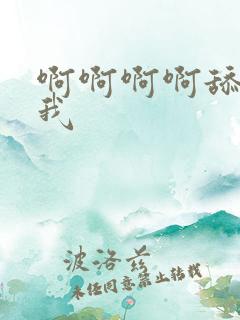 啊啊啊啊舔
我
波洛兹
未经同意禁止转载